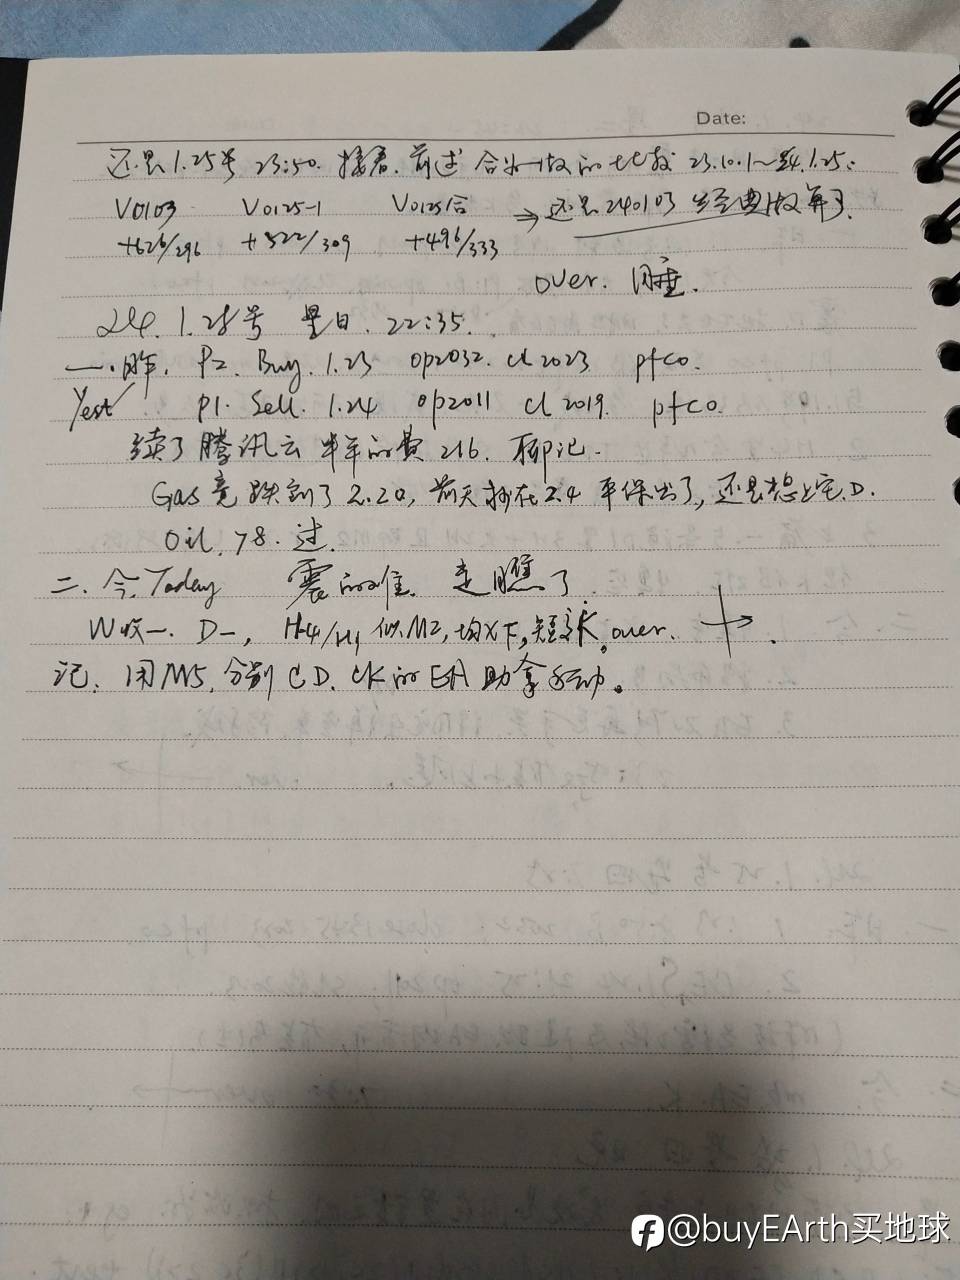 Date:
还是1.25号 23:50. 接着. 前述 合并版的比较 23.10.1~24.1.25:
V0103 V0125-1 V0125合 ⇒ 还是240103 经典版算了.
+626/296 +522/309 +496/333
over. 睡.
24.1.28号 星日. 22:35.
一. 昨. P2. Buy. 1.23 op2032. cl 2023 pfco.
Yest P1. Sell. 1.24 op2011 cl 2019. pfco.
续了腾讯云 半年的费 216. 聊记.
Gas竟跌到了2.20, 前天抄在2.4 平保出了, 还是想上宅.D.
Oil. 78. 过.
二. 今 Today 震的难. 走瞧了
W收一. D一, H4/H1 似M2, 均X下, 短K. over.
记: 用M5. 分别CD. CK的EA助拿
@buyEArth买地球